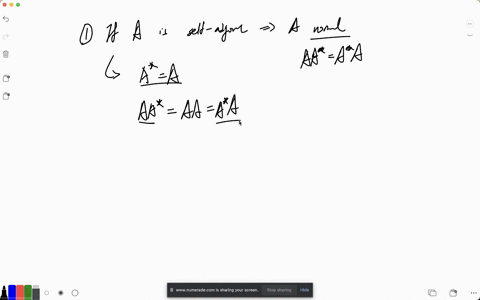 ① If A is self-adjoint => A normal
AA* = A*A
A* = A
AA* = AA = A*A
www.numerade.com is sharing your screen. Stop sharing Hide